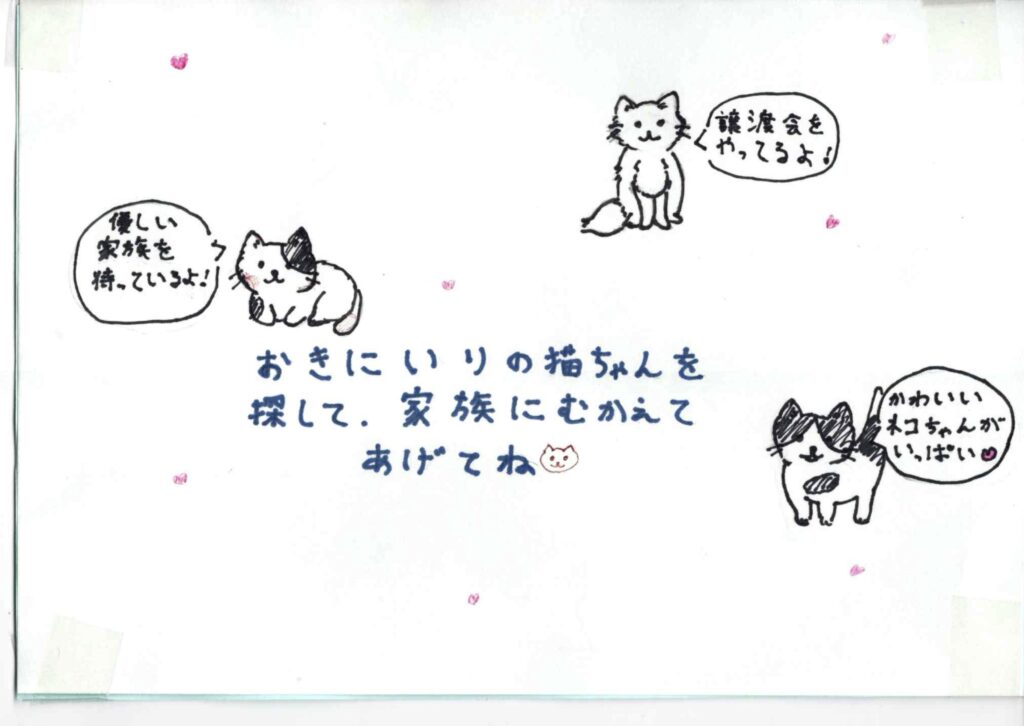 譲渡会を
やってるよ!
優しい
家族を
待っているよ!
おきにいりの猫ちゃんを
探して、家族にむかえて
あげてね
かわいい
ネコちゃんが
いっぱい